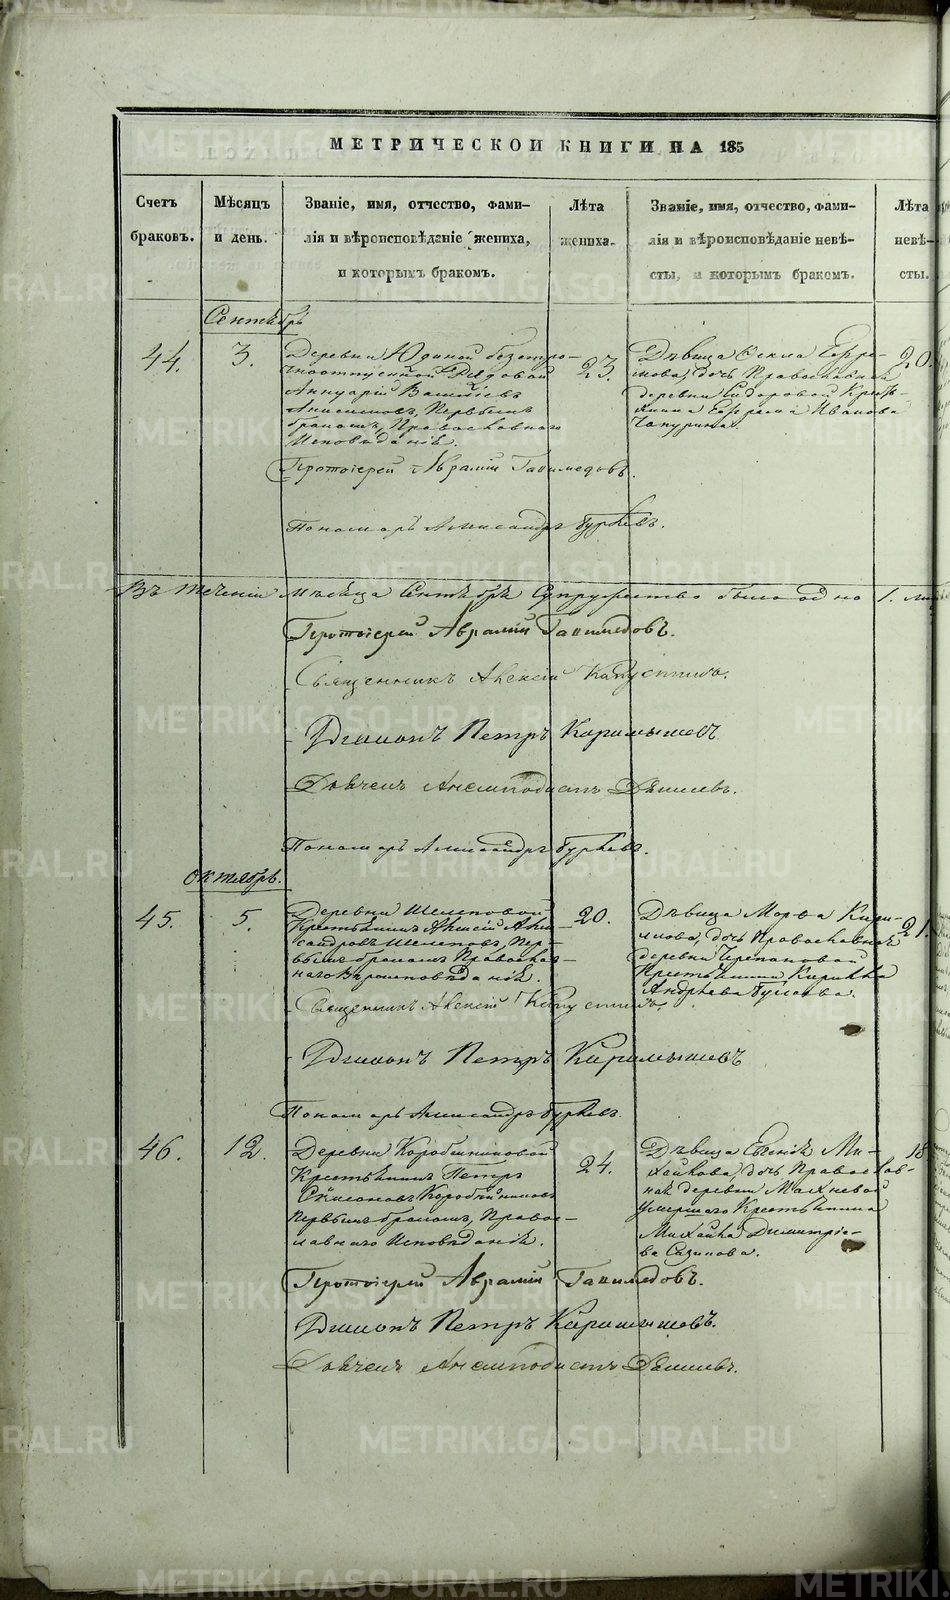 МЕТРИЧЕСКОЙ КНИГИ НА 185
Счетъ браковъ.
Мѣсяцъ и день.
Званіе, имя, отчество, фами-
лія и вѣроисповѣданіе жениха,
и которымъ бракомъ.
Лѣта жениха.
Званіе, имя, отчество, фами-
лія и вѣроисповѣданіе невѣ-
сты, и которымъ бракомъ.
Лѣта невѣ-
сты.
Сентябрь
44.
3.
Деревни Юдиной безсро-
чноотпускной Рядовой
Василіевъ
Анисимовъ, Первымъ
бракомъ, Православнаго
Исповѣданія.
23.
Дѣвица Фекла Ефре-
мова, дочь Православная
деревни Сидоровой Кресть-
янина Ефрема Иванова
Чапурина.
20.
Протоіерей Авраамій Ганимедовъ.
Пономарь Александръ
Въ теченіи Мѣсяца Сентября Супружество было одно 1.
Протоіерей Авраамій Ганимедовъ.
Священникъ Алексій Капустинъ.
Діаконъ Петръ Карамышевъ
Дьячекъ Анемподистъ
Пономарь Александръ
Октябрь.
45.
5.
Деревни Шелеповой
Крестьянинъ Алексій Алек-
сандровъ Шелеповъ, Пер-
вымъ бракомъ Православ-
наго Вѣроисповѣданія.
20.
Дѣвица Марѳа Кири-
лова, дочь Православная
деревни Черепановой
Крестьянина Кирилла
Андреева
21.
Священникъ Алексій Капустинъ.
Діаконъ Петръ Карамышевъ
Пономарь Александръ
46.
12.
Деревни Коробейниковой
Крестьянинъ Петръ
Коробейниковъ
Первымъ бракомъ, Право-
славнаго Исповѣданія.
24.
Дѣвица Евгенія Ми-
хайлова, дочь Православ-
ная деревни Махневой
умершаго Крестьянина
Михайла Димитріе-
ва
18
Протоіерей Авраамій Ганимедовъ.
Діаконъ Петръ Карамышевъ.
Дьячекъ Анемподистъ
METRIKI.GASO-URAL.RU